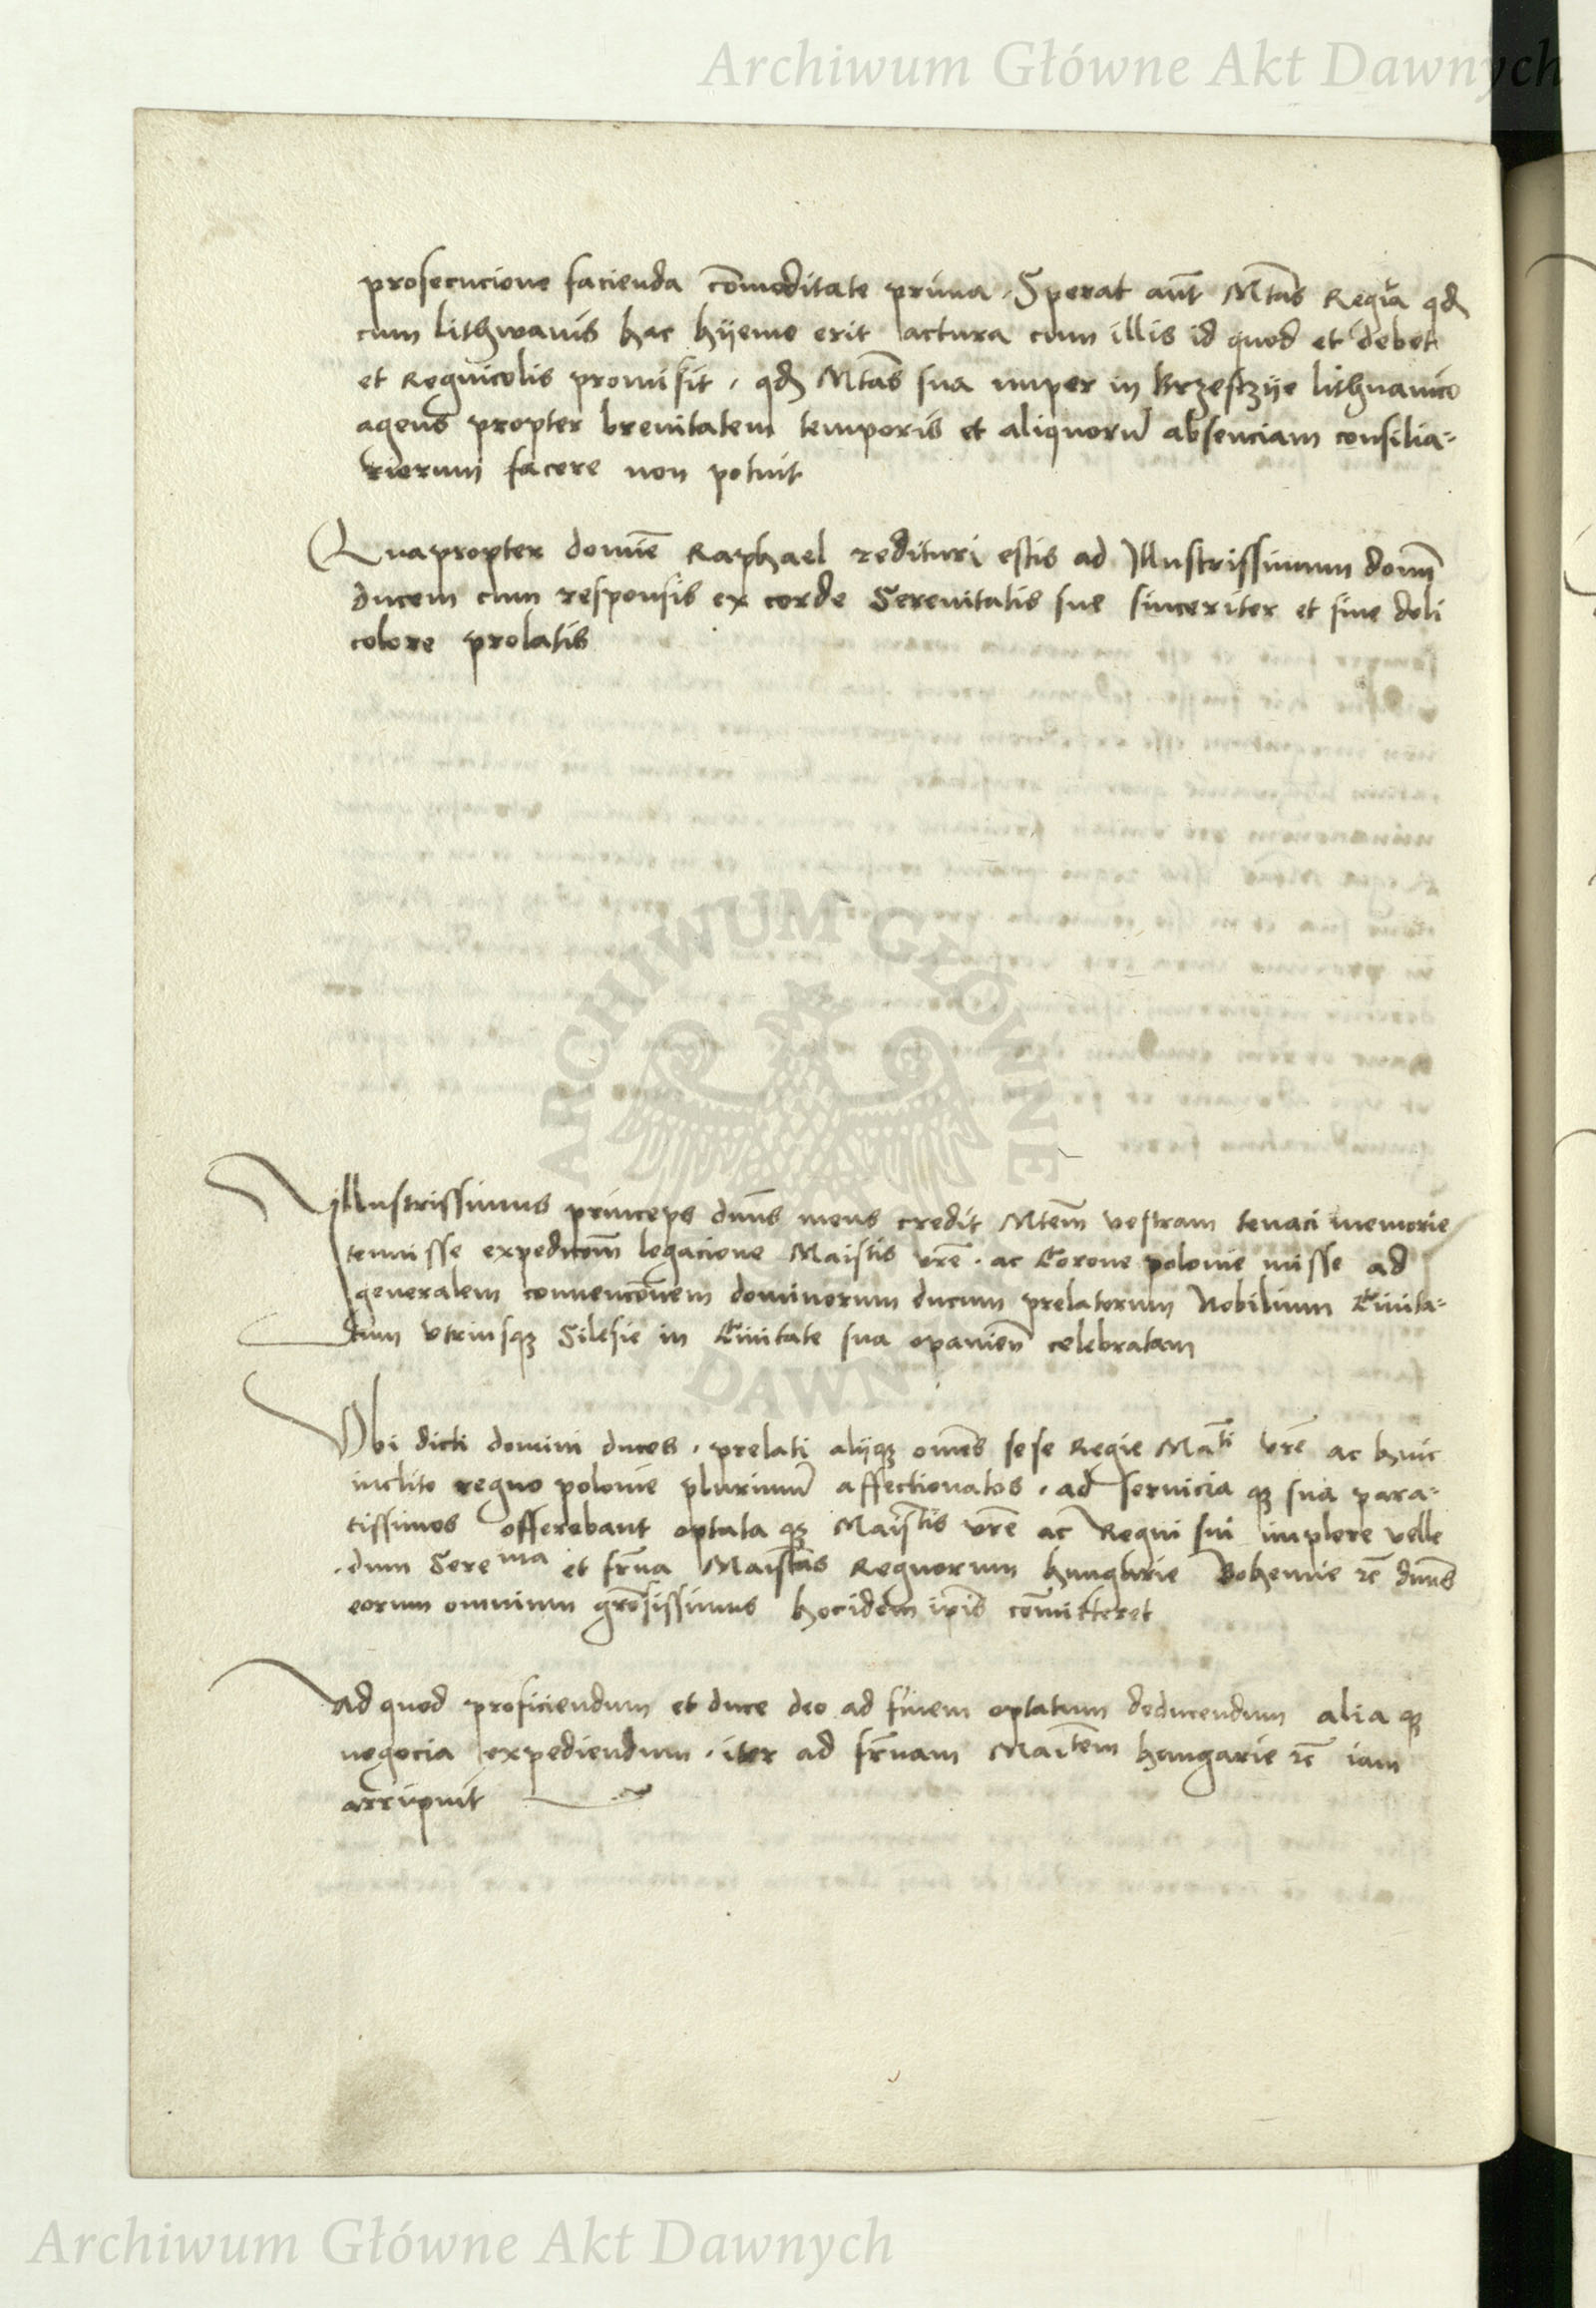 Archiwum Główne Akt Dawnych
prosecucione facienda com̄oditate prima. Sperat aūt Mtās Regīa qđ
cum lithwanis hac hÿeme erit actura cum illis id quod et debet
et Regnicolis promisit, qđ Mtās sua nuper in Brzesczÿe lithuanico
agens propter breuitatem temporis et aliquorū absenciam consilia-
riorum facere non potuit
Quapropter domiē Raphael redituri estis ad Illustrissimum domī
ducem cum responsis ex corde Serenitatis sue sinceriter et sine doli
colore prolatis
ARCHIWUM GŁÓWNE
Illustrissimus princeps dūns meus credit Mtēm vestram tenaci memorie
tenuisse legacione Maistīs vrē. ac Corone polonie misse ad
generalem conuencōnem dominorum ducum prelatorum Nobilium Ciuita-
tum vtriusqȝ Silesie in Ciuitate sua opauieñ celebratam
DAWN
Vbi dicti domini duces, prelati alijqȝ omēs sese Regie Matī vrē ac huic
inclito regno polonie plurimū affectionatos, ad seruicia qȝ sua para-
tissimos offerebant optata qȝ Maistīs vrē ac Regni sui implere velle
dum Serema et frn̄a Maistās Regnorum hungarie Bohemie rē dūns
eorum omnium grōsissimus hocidem ipīs com̄itteret
Ad quod proficiendum et duce deo ad finem optatum deducendum alia qȝ
negocia expediendum, iter ad frn̄am Maitēm hungarie rē iam
arripuit
Archiwum Główne Akt Dawnych